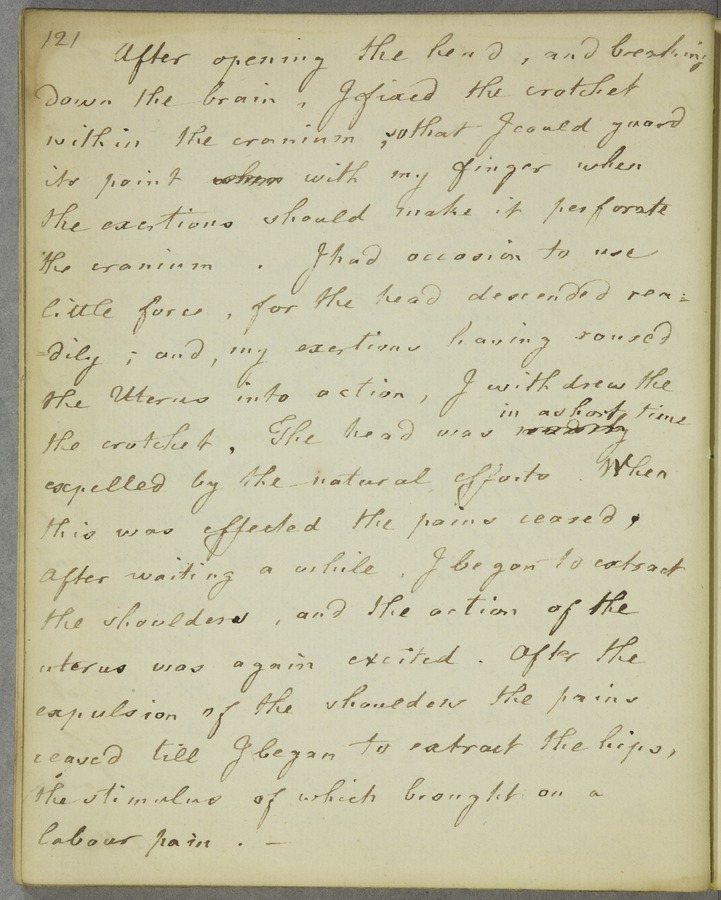 121
After opening the head, and breaking
down the brain, I fixed the crotchet
within the cranium, so that I could guard
its point when with my finger when
the exertions should make it perforate
the cranium. I had occasion to use
little force, for the head descended rea=
=dily; and, my exertions having roused
the Uterus into action, I withdrew the
in a short time
the crotchet. The head was
expelled by the natural efforts. When
this was effected the pains ceased;
After waiting a while, I began to extract
the shoulders, and the action of the
uterus was again excited. After the
expulsion of the shoulders the pains
ceased till I began to extract the hips,
the stimulus of which brought on a
labour pain. —